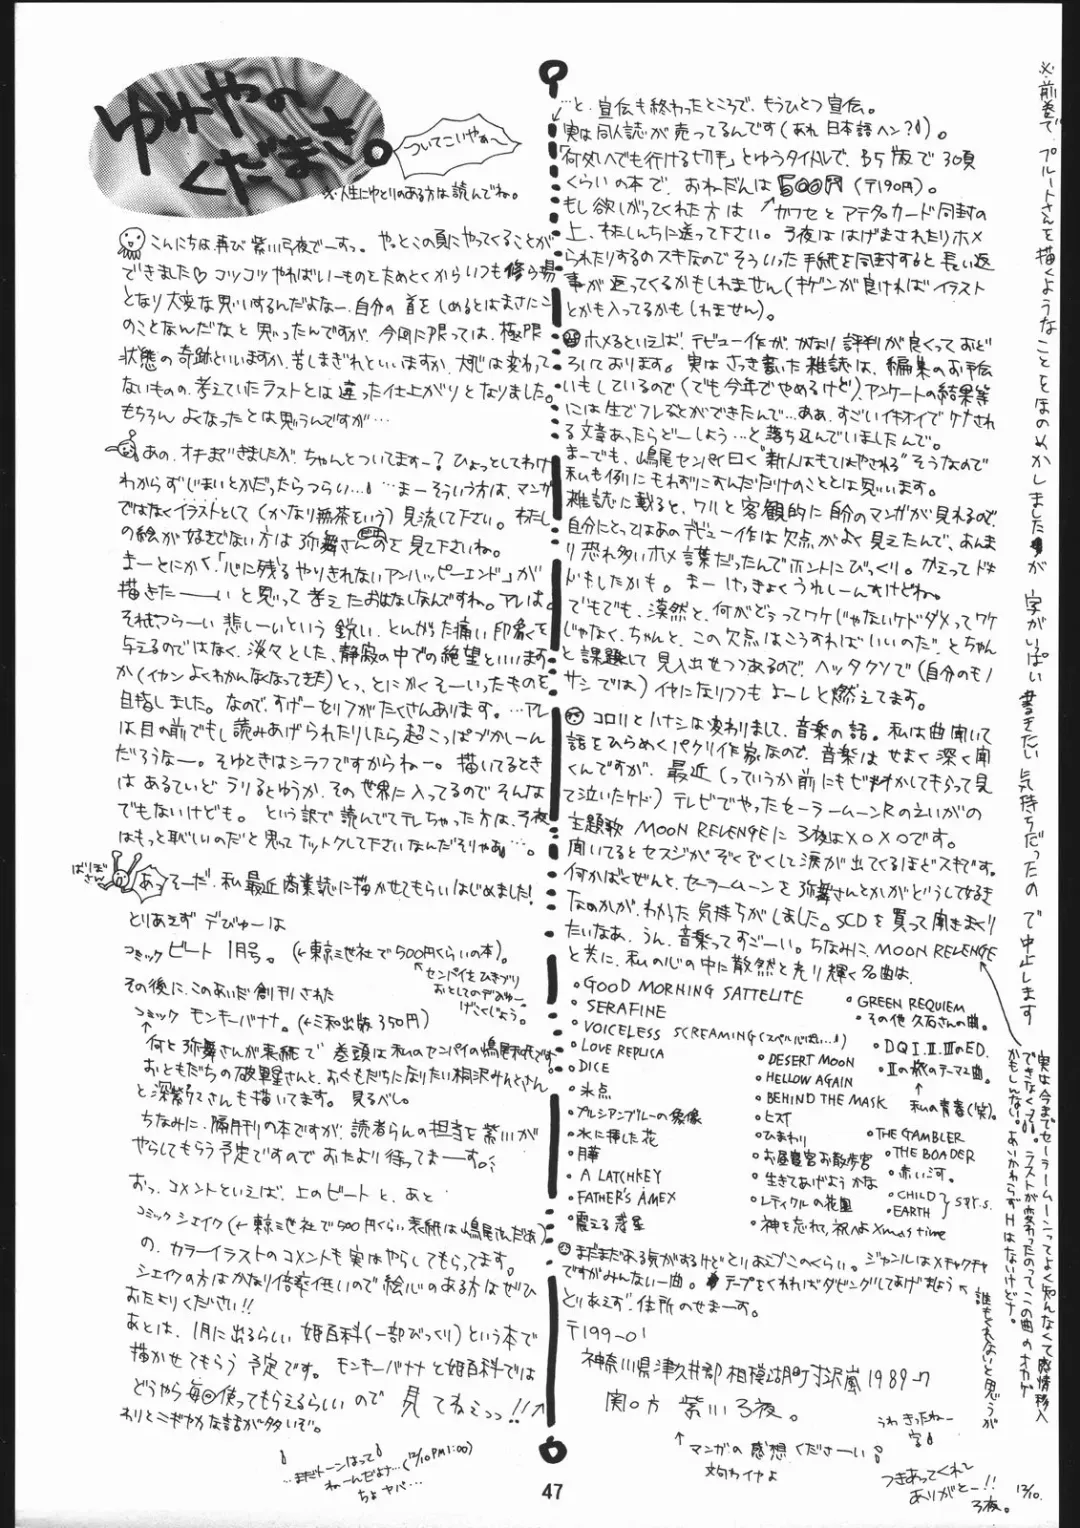 ゆみやの
くだまき。
ついてこいやぁ〜
※人生にゆとりのある方は読んでね。
こんにちは、再び紫川弓夜でーすっ。やっとこの頁にやってくることが
できました♡コツコツやればいーものをためとくからいつも修ら場
となり大変な思いするんだよなー。自分の首をしめるとはまさにこ
のことなんだなと思ったんですが、今回に限っては、極限
状態の奇跡といいますか、苦しまぎれといいますか、大旨は変わって
ないものの、考えていたラストとは違った仕上がりとなりました。
もちろんよなったとは思うんですが…
あの、オチまできましたが、ちゃんとついてますー?ひょっとしてわけ
わからずじまいとかだったらつらい…! …まーそういう方は、マンガ
ではなくイラストとして(かなり無茶をいう)見流して下さい。わたし
の絵が好きでない方は弥舞さんのを見て下さいね。
まーとにかく「心に残るやりきれないアンハッピーエンド」が
描きたーーいと思って考えたおはなしなんですね。アレは。
それもつらーい悲しーいという鋭い、とんがった痛い印象を
与えるのではなく、淡々とした、静寂の中での絶望といいます
か(イカンよくわかんなくなってきた)とっ、とにかくそーいったものを
目指しました。なので、すげーセリフがたくさんあります。…アレ
は目の前でもし読みあげられたりしたら超こっぱづかしーん
だろうなー。そゆときはシラフですからねー。描いてるとき
はあるていどラリるとゆうか、その世界に入ってるのでそんな
でもないけども。という訳で読んでてテレちゃった方は、弓夜
はもっと恥じしいのだと思ってナットクして下さいなんだそりゃあ…。
ぱりぽ
さん
あっそーだ、私最近商業誌に描かせてもらいはじめました!
とりあえずデびゅーは
コミックビート 1月号。(←東京三世社で500円くらいの本)。
センパイをひきずり
おとしてのデみゅー。
げこくじょう。
その後に、このあいだ創刊された
コミック モンキーバナナ。(←三和出版350円)
何と弥舞さんが表紙で巻頭は私のセンパイの嶋尾和氏です。
おともだちの破軍星さんと、おともだちになりたい桐沢みんとさん
と深紫几さんも描いてます。見るべし。
ちなみに、隔月刊の本ですが、読者らんの担当を紫川が
やらしてもらう予定ですのでおたより待ってまーす。
おっ、コメントといえば、上のビートと、あと
コミックシェイク(←東京三世社で500円くらい表紙は嶋尾さんだぁ)
の、カラーイラストのコメントも実はやらしてもらってます。
シェイクの方はかなり倍率低いので絵心のある方はぜひ
おたよりください!!
あとは、1月に出るらしい 婚百科(一部びっくり)という本で
描かせてもらう予定です。モンキーバナナと婚百科では
どうやら毎回使ってもらえるらしいので 見てねえっっ!!
わりとニギやかな話が多いぞ。
…まだトーンはって
ねーんだよナ…(12/10PM1:00)
ちょヤバ…
…と、宣伝も終わったところで、もうひとつ宣伝。
実は同人誌が売ってるんです(あれ日本語ヘン?!)。
「何処へでも行ける切手」とゆうタイトルで、B5版で30頁
くらいの本で、おねだんは500円(〒190円)。
もし欲しがってくれた方はカワセとアテ名カード同封の
上、わたしんちに送って下さい。弓夜ははげまされたりホメ
られたりするのスキなのでそういった手紙を同封すると長い返
事が返ってくるかもしれません(キゲンが良ければイラスト
とかも入ってるかもしれません)。
ホメるといえば、デビュー作が、かなり評判が良くっておど
ろいております。実はさっき書いた雑誌は、編集のお手伝
いもしているので(でも今年でやめるけど)、アンケートの結果等
には生でフレるとができたんで…ああ、すごいイキオイでケナされ
る文章あったらどーしよう…と落ち込んでいましたんで。
まーでも、嶋尾センパイ曰く“新人はもてはやされる”そうなので
私も例にもれずにすんだだけのこととは思います。
雑誌に載ると、ワリと客観的に自分のマンガが見れるので、
自分にとってはあのデビュー作は欠点がよく見えたんで、あんま
り恐れ多いホメ言葉だったんでホントにびっくり。かえってドキ
ドもしたかも。まーけっきょくうれしーんすけどね。
でもでも、漠然と、何がどうってワケじゃないケドダメってワケ
じゃなく、ちゃんと、この欠点はこうすればいいのだ、とちゃん
と課題として見入出せつつあるので、ヘッタクソで(自分のモノ
サシでは)イヤになりつつもよーしと燃えてます。
コロリとハナシは変わりまして、音楽の話。私は曲聞いて
話をひらめくパクリ作家なので、音楽はせまく深く聞
くんですが、最近(っていうか前にもビデオかしてもらって見
て泣いたケド)テレビでやったセーラームーンRのえいがの
主題歌 MOON REVENGEに弓夜はXOXOです。
聞いてるとセスジがぞくぞくして涙が出てくるほどスキです。
何かばくぜんと、セーラームーンを弥舞さんとかがどうしてスキ
なのかが、わかった気持ちがしました。SCDを買って聞きまくり
たいなあ、うん、音楽ってすごーい。ちなみに、MOON REVENGE
と共に、私の心の中に散然と光り輝く名曲は、
・GOOD MORNING SATTELITE
・SERAFINE
・VOICELESS SCREAMING(スペルぱい…!)
・LOVE REPLICA
・DICE
・氷点
・プルシアンブルーの肖像
・氷に挿した花
・月華
・A LATCHKEY
・FATHER'S AMEX
・震える惑星
・DESERT MOON
・HELLOW AGAIN
・BEHIND THE MASK
・ヒス
・ひまわり
・お昼寝宮お散歩宮
・生きてあげようかな
・レティクルの花園
・神を忘れ、祝えXmas time
・GREEN REQUIEM
・その他久石さんの曲。
・DQⅠ.Ⅱ.ⅢのED.
・Ⅱの旅のテーマ曲。
私の青春(笑)。
・THE GAMBLER
・THE BOADER
・赤い河。
・CHILD
・EARTH
まだまだある気がするけどとりあえずこのくらい。ジャンルはメチャクチャ
ですがみんないー曲。テープをくれればダビングしてあげましょう
誰もくれないと思うが
とりあえず、住所のせまーす。
〒199-01
神奈川県津久井郡相模湖町寸沢嵐1989-7
関口方 紫川弓夜。
マンガの感想くださーい!
文句わイヤよ
うわきったねー
字!
つきあってくれて
ありがとー!!
弓夜。
12/10.
※前巻で、プルートさんを描くようなことをほのめかしましたが 字がいっぱい書きたい気持ちだったので中止します
実は今までセーラームーンってよく知んなくて感情移入
できなくって!! 。ラストが変わったのって、この曲のオカゲ
かもしんない。あいかわらずHはないけどナ。
47